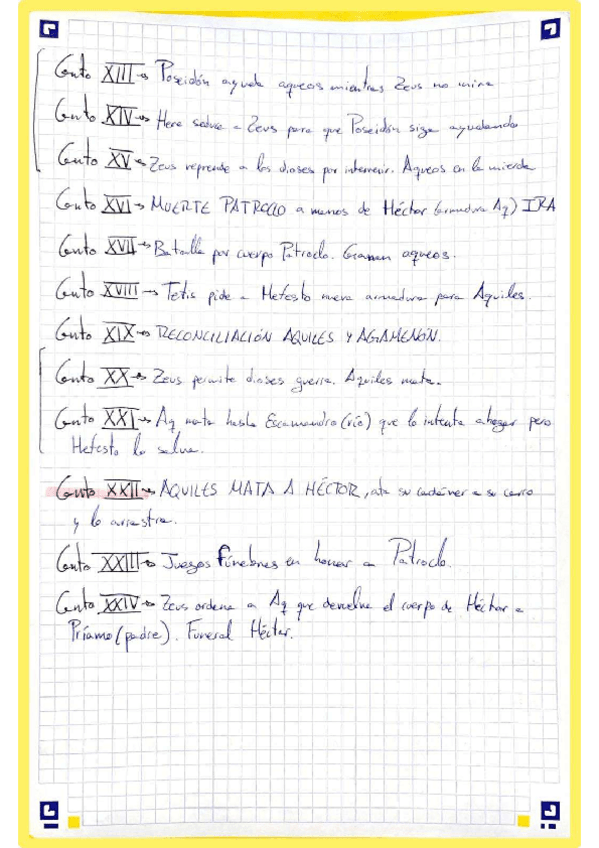 Canto XIII → Poseidón ayuda aqueos mientras Zeus no mira
Canto XIV → Hera seduce a Zeus para que Poseidón siga ayudando
Canto XV → Zeus reprende a los dioses por intervenir. Aqueos en la mierda
Canto XVI → MUERTE PATROCLO a manos de Héctor (armadura Aq) IRA
Canto XVII → Batalla por cuerpo Patroclo. Ganan aqueos.
Canto XVIII → Tetis pide a Hefesto nueva armadura para Aquiles.
Canto XIX → RECONCILIACIÓN AQUILES Y AGAMENÓN.
Canto XX → Zeus permite dioses guerra. Aquiles mata.
Canto XXI → Aq mata hasta Escamandro (río) que lo intenta ahogar pero
Hefesto lo salva.
Canto XXII → AQUILES MATA A HÉCTOR, ata su cadáver a su carro
y lo arrastra.
Canto XXIII → Juegos fúnebres en honor a Patroclo.
Canto XXIV → Zeus ordena a Aq que devuelva el cuerpo de Héctor a
Príamo (padre). Funeral Héctor.